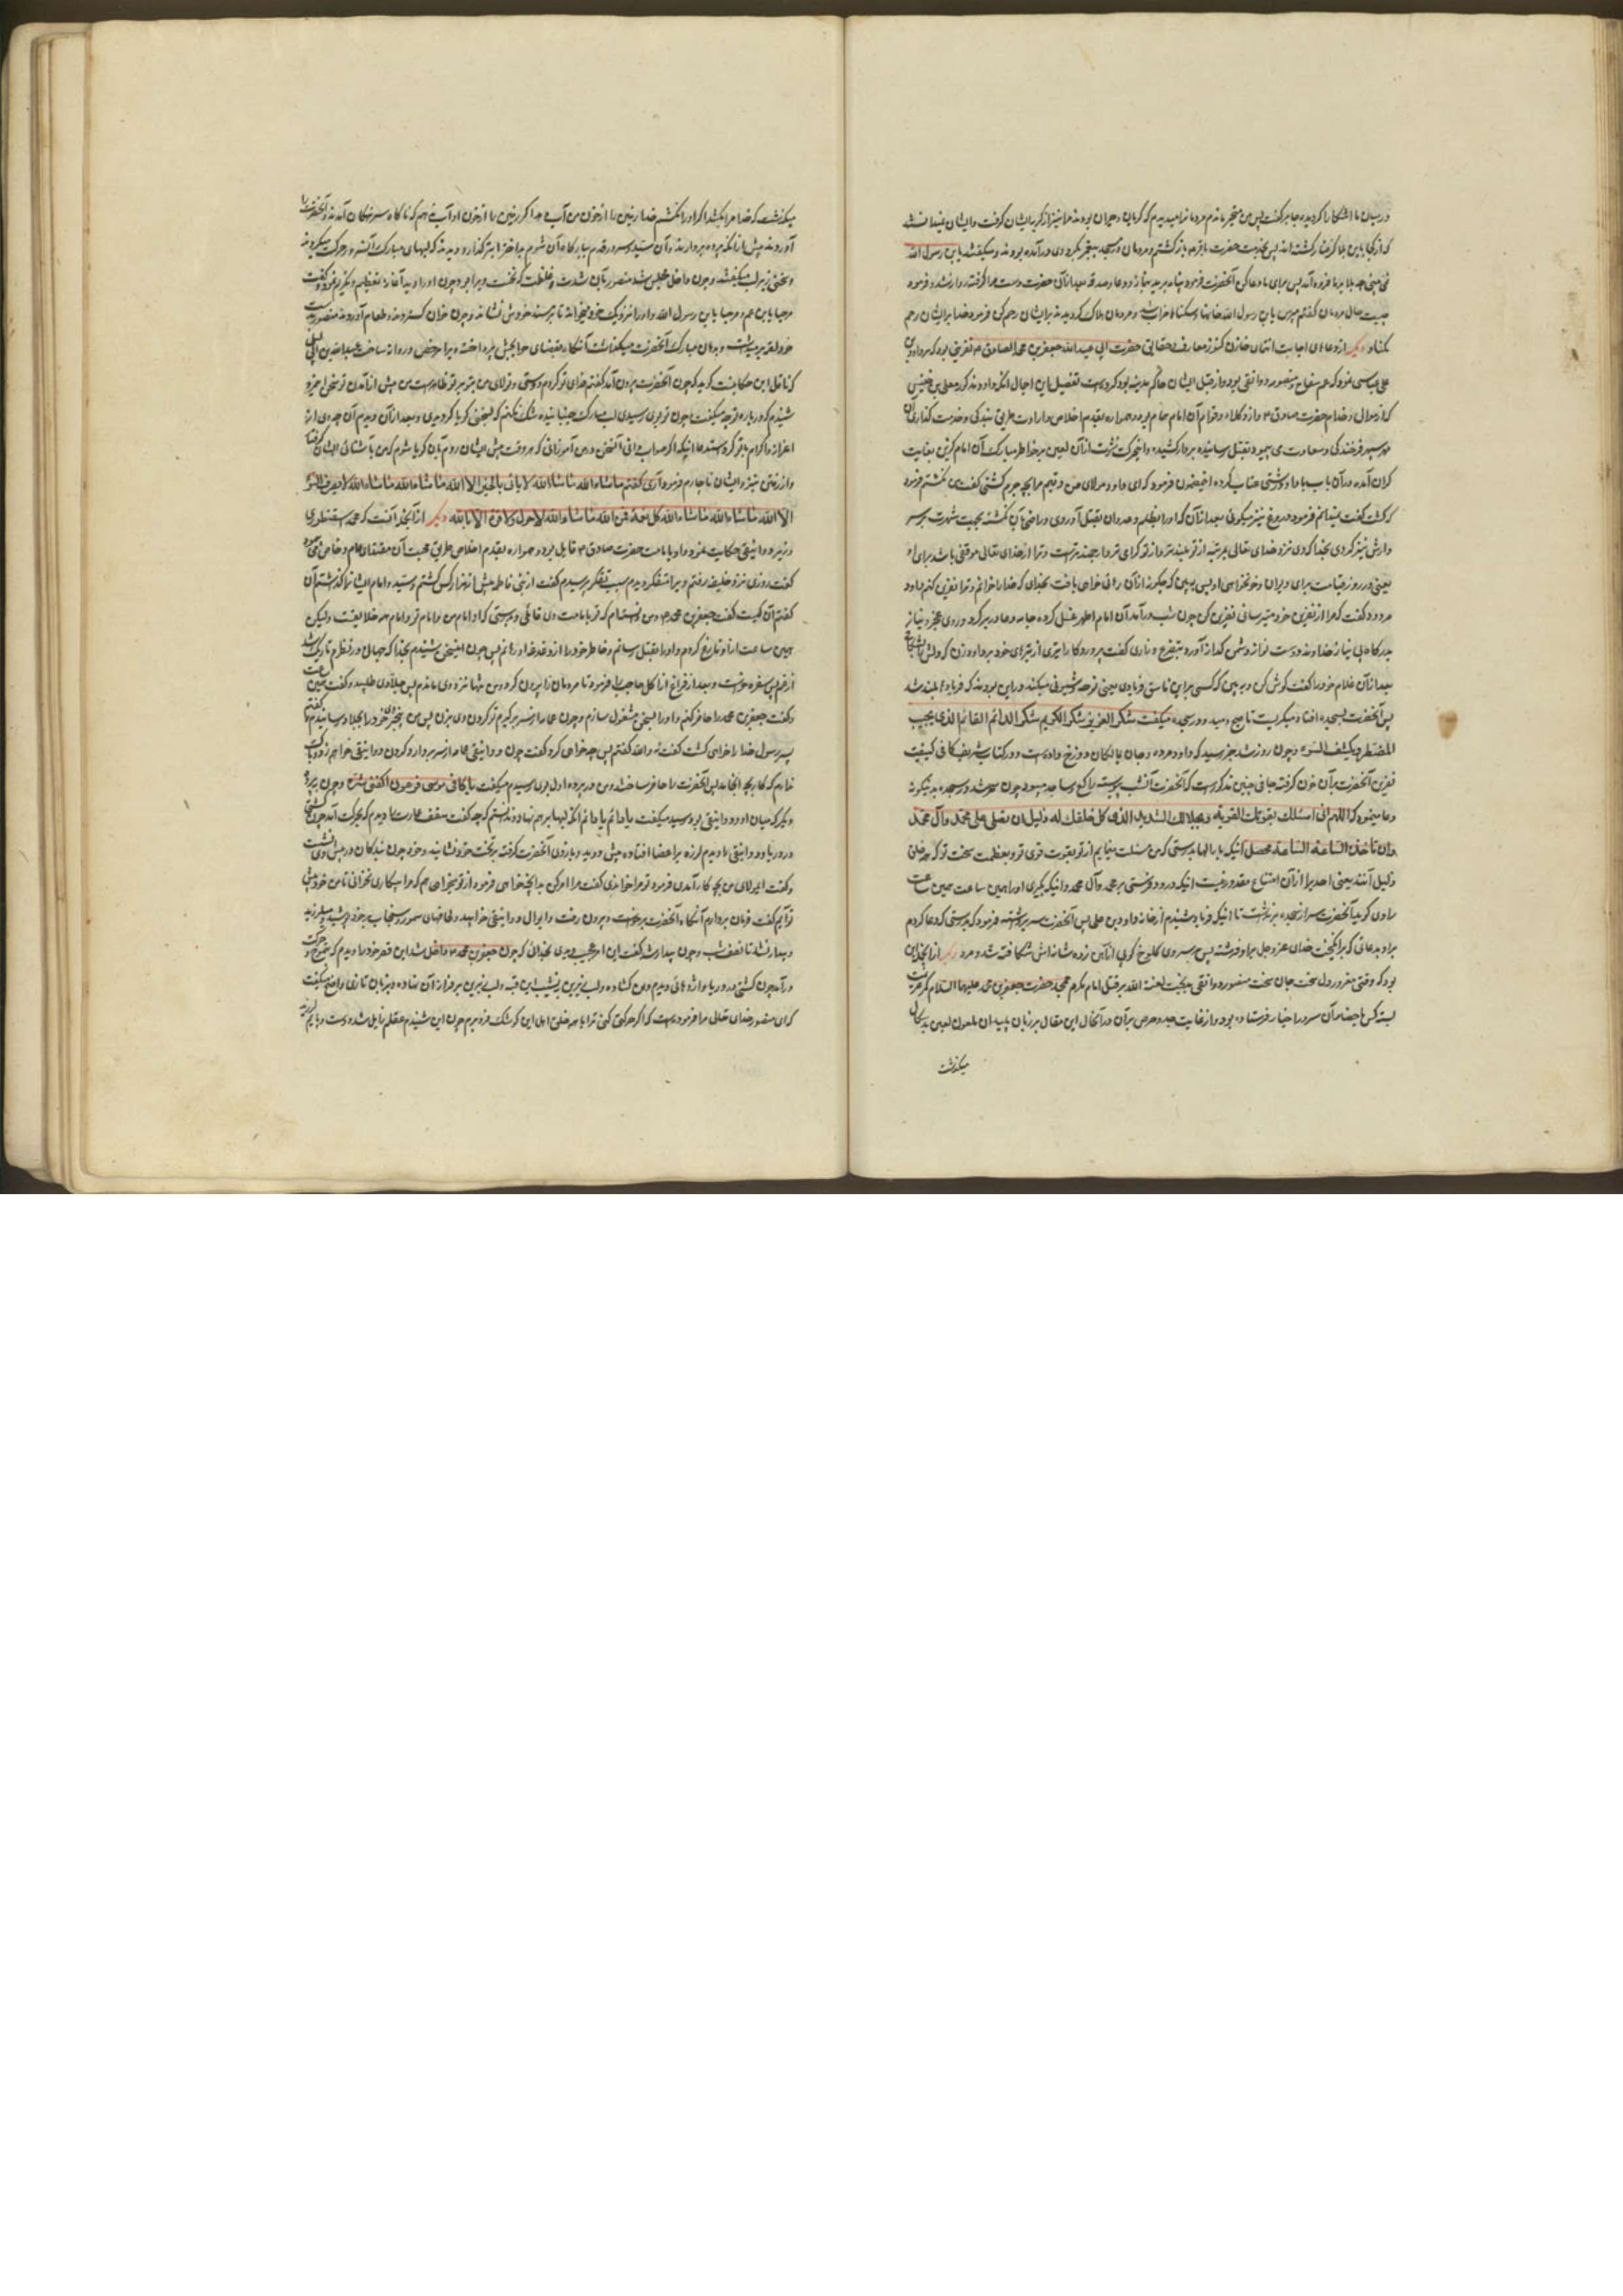 در میان ما آشکارا کردیده جابر گفت پس من متحیر ماندم مردمانرا میدیدم که گریان و حیران بودند مرا نیز از گریه ایشان گرفت و ایشان نمیدانستند
که از کجا باین بلا گرفتار گشته اند پس بخدمت حضرت باقر م باز گشتم و مردمان در مسجد پیغمبر بگرد وی در آمده بودند و میگفتند یابن رسول الله
نمی بینی چه بلا بر ما فرود آمد پس برای ما دعا کن آنحضرت فرمود پناه برید بنماز و دعا و صدقه بعد از آن حضرت دست مرا گرفته روان شد و فرمود
چیست حال مردمان گفتم مپرس یابن رسول الله خانها و مسکنها خراب شد و مردمان هلاک کردیدند بر ایشان رحم کن فرمود خدا بر ایشان رحم
نکناد دیگر از دعاهای اجابت انتمای خازن کنوز معارف و حقایق حضرت ابی عبدالله جعفر بن محمد الصادق م نفرینی بود که بر داود بن
علی عباسی فرود که عم سفاح و منصور دوانقی بود و از قبل ایشان حاکم مدینه بود کرده است تفصیل این اجمال آنکه داود مذکور معلی بن خنیس
که از موالی و خدام حضرت صادق م و از وکلاء و خواص آن امام همام بود و همواره بقدم اخلاص و ارادت طریق بندگی و خدمت گذاری آن
سپهر فرخندگی و سعادت می پیمود بقتل رسانیده بر دار کشیده و اینحرکت زشت از آن لعین بر خاطر مبارک آن امام گزین بغایت
گران آمده در آن باب با داود درشتی عتاب کرده اینمضمون فرمود که ای داود مولای من و قیم مرا بچه جرم کشتی گفت من نکشتم فرمود
که کشت گفت نمیدانم فرمود دروغ نیز میگوئی بعد از آن که او را بظلم و عدوان بقتل آوردی و راضی بآن نگشته بجهت شهرت بر سر
دارش نیز کردی بخدا که وی نزد خدای تعالی بمرتبه از تو بلندتر و از تو گرامی تر و ارجمندتر است و ترا از خدای تعالی موقفی باشد برای او
یعنی در روز قیامت برای و بران و خونخواهی او پس ببین که چگونه از آن رهائی خواهی یافت بخدای که خدا را خوانم و ترا نفرین کنم داود
مردود گفت که مرا از نفرین خود میترسانی نفرین کن چون شب در آمد آن امام اطهر غسل کرده جامه دعا در بر کرد و روی عجز و نیاز
بدرگاه بی نیاز خداوند دوست نواز دشمن گداز آورده بتضرع و زاری گفت پروردگارا تیری از تیرهای خود بر داود زن که دلش
بعد از آن غلام خود را گفت گوش کن و ببین که کسی براین ناسق فریادی یعنی نوحه و شیونی میکند در این بودند که فریادها بلند شد
پس آنحضرت بسجده افتاد میگریست تا صبح دمید و در سجده میگفت شکر العزیز شکر الکریم شکر الدائم القائم الذی یجیب
المضطر و یکشف السوء و چون روز شد خبر رسید که داود مرده و جان بمالکان دوزخ داده است و در کتاب شریف کافی کیفیت
نفرین آنحضرت بر آن خون گرفته جافی چنین مذکور است که آنحضرت آنشب پیوسته راکع و ساجد میبود چون سحر شد در سجده بدینگونه
دعا مینمود که اللهم انی اسئلک بقوتک القویة و بجلالک الشدید الذی کل خلقک له ذلیل ان تصلی علی محمد و آل محمد
وان تاخذه الساعة الساعة محصل آنکه بار الها بدرستی که من مسئلت مینمایم از تو بقوت قوی تو و بعظمت سخت تو که همه خلق
ذلیل آنند یعنی احدیرا از آن امتناع مقدور نیست آنکه درود فرستی بر محمد و آل محمد و آنکه بگیری او را همین ساعت همین ساعت
راوی گوید آنحضرت سر از سجده بر نداشت تا آنکه فریاد شنیدم از خانه داود بن علی پس آنحضرت سر برداشته فرمود که بدرستی که دعا کردم
براو بدعائی که برانگیخت خدای عز و جل براو فرشته پس بر سر وی کلوخ کوبی از آهن زده مثانه اش شکافته شد و مرد دیگر از آنجمله این
بود که وقتی مغرور دل سخت جان سخت منصور دوانقی بدبخت لعنة الله بر قتل امام مکرم ممجد حضرت جعفر بن محمد علیهما السلام کمر عزیمت
بسته کس باحضار آن سرور اخیار فرستاده بود و از غایت جد و حرص بر آن در آنحال این مقال بر زبان پلید آن ملعون لعین بدسگال
میگذشت
میگذشت که خدا مرا بکشد اگر او را نکشم خدا زمین را از خون من آب دهد اگر زمین را از خون او آب ندهم که ناگاه سرهنگان آمدند و آنحضرت را
آوردند پیش از آنکه پرده بردارند و آن سید و سرور قدم ببارگاه آن شوم بداختر ابتر گذارد دیدند که لبهای مبارکش آهسته در حرکت میکردند
و سخنی زیر لب میگفتند و چون داخل مجلس شد منصور را آن شدت و غلظت که نخست ویرا بود چون او را دید آغاز تعظیم و تکریم نموده گفت
مرحبا یابن عم و مرحبا یابن رسول الله و او را نزدیک خود خوانده تا بر مسند خودش نشانده و چون خوان گستردند و طعام آوردند منصور بدست
خود لقمه برمیداشت و بدهان مبارک آنحضرت میگذاشت آنگاه بقضای حوایجش پرداخته ویرا مرخص و روانه ساخت عبدالله بن ابی لیلی
که ناقل این حکایتست گوید که چون آنحضرت بیرون آمد گفتم فدای تو گردم دوستی و تولای من بتو بر تو ظاهر است من پیش از آمدن تو سخنی از وی
شنیدم که در باره تو چه میگفت چون تو بدر رسیدی لب مبارک جنبانیده شک نمیکنم که سخنی گویا کردیدی و بعد از آن دیدم آن چه وی از
اعزاز و اکرام با تو کرد استدعا آنکه اگر صواب دانی آنسخن در من آموزانی که هر وقت پیش ایشان روم بآن گویا شوم که من بآشنائی ایشان گرفتار
و از رفتن نزد ایشان ناچارم فرمود آری گفتم ماشاء الله ماشاء الله لا یاتی بالخیر الا الله ماشاء الله ماشاء الله لا یصرف السوء
الا الله ماشاء الله ماشاء الله کل نعمة فمن الله ماشاء الله لاحول ولا قوة الا بالله دیگر از آنجمله آنست که محمد سقنطری
وزیر دوانیقی حکایت نموده و او بامامت حضرت صادق م قایل بود و همواره بقدم اخلاص طریق محبت آن مقتدای عام و خاص می نمود
گفت روزی نزد خلیفه رفتم ویرا متفکر دیدم سبب تفکر پرسیدم گفت از بنی فاطمه بیش از هزار کس کشتم و سید و امام ایشانرا گذاشتم آن
گفتم آن کیست گفت جعفر بن محمد م و من دانسته ام که تو بامامت وی قائلی و بدرستی که او امام من و امام تو و امام همه خلایقست ولیکن
همین ساعت از او فارغ گردم و او را بقتل رسانم و خاطر خود را از دغدغه او رهانم پس چون اینسخن شنیدم بخدا که جهان در نظرم تاریک شد
و گفت جعفر بن محمد را حاضر کنم و او را بسخن مشغول سازم و چون عمامه از سر بر گیرم تو گردن وی بزن
پسر رسول خدا را خواهی کشت گفت نه والله گفتم پس چه خواهی کرد گفت چون دوانیقی عمامه از سر بردارد گردن دوانیقی خواهم زد و باک
ندارم که کار بچه انجامد پس آنحضرت را حاضر ساختند و من در پرده اول بدو رسیدم میگفت یا کافی موسی فرعون اکفنی شره و چون بپرده
دیگر که میان او و دوانیقی بود رسید میگفت یا دائم یا دائم آنگه لبها بر هم نهاد و ندانستم که چه گفت سقف عمارت را دیدم که بحرکت آمد چون کشتی
در دریا و دوانیقی را دیدم لرزه بر اعضا افتاده پیش دوید و بازوی آنحضرت گرفته بر تخت خود نشانید و خود چون بندگان در پیش وی نشست
و گفت ای مولای من بچه کار آمدی فرمود تو مرا خواندی گفت مرا امر کن بدانچه خواهی فرمود از تو میخواهم که مرا بیکاری نخوانی تا من خود پیش
تو آیم گفت فرمان بردارم آنگاه آنحضرت برخاست و بیرون رفت و ابوال دوانیقی خوابید و لحافهای سمور و سنجاب بر خود پوشید و میلرزید
و بیدار نشد تا نصف شب و چون بیدار شد گفت این امر عجیب دیدی بخدائی که چون جعفر بن محمد م داخل شد این قصر خود را دیدم که بموج و حرکت
در آمد چون کشتی در دریا و اژدهائی دیدم دهن گشاده و لب زیرین بنشیب این قبه و لب زبرین بر فراز آن نهاده و بزبان تازی واضح میگفت
که ای منصور خدای تعالی مرا فرموده است که اگر حرکتی کنی ترا با هر خلق اهل این کوشک فرو برم چون این شنیدم عقلم زایل شد و دست و پایم لرزید